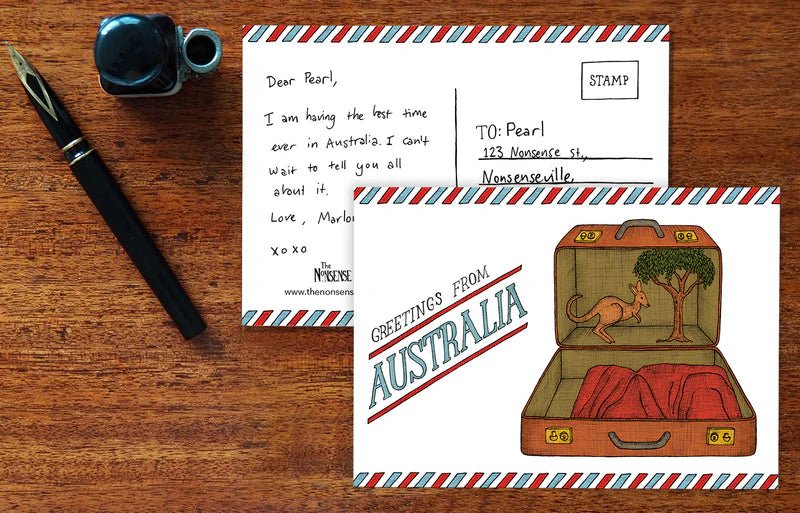 Dear Pearl,
I am having the best time
ever in Australia. I can't
wait to tell you all
about it.
Love,
xoxo
The
NONSENSE
STAMP
TO: Pearl
123 Nonsense st.,
Nonsenseville,
GREETINGS FROM
AUSTRALIA